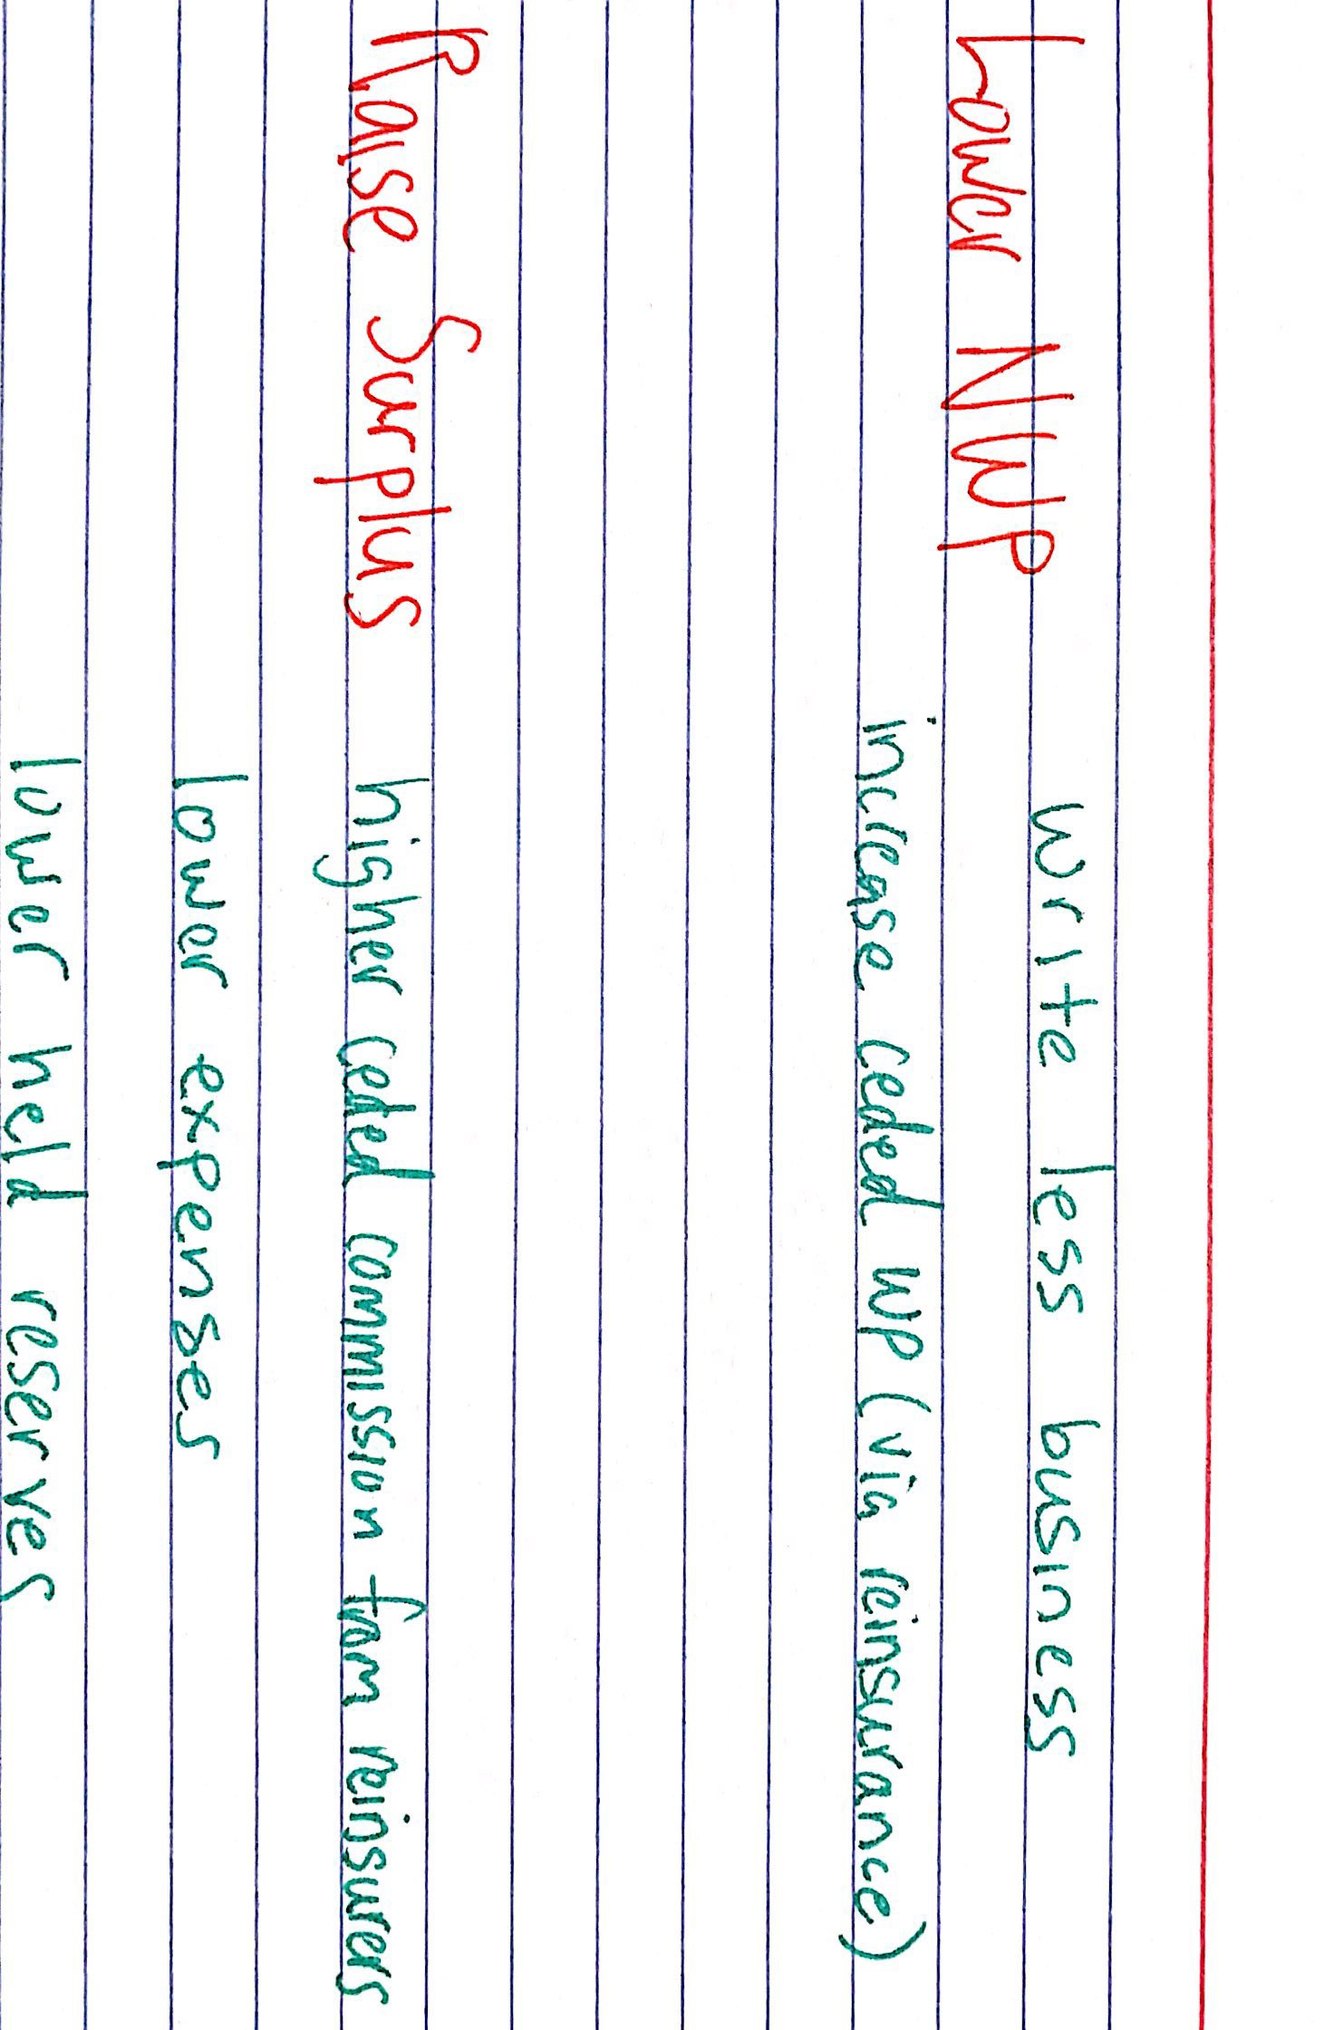 Lower NWP write less business
increase ceded WP (via reinsurance)
Raise Surplus higher ceded commission from reinsurers
lower expenses
lower held reserves